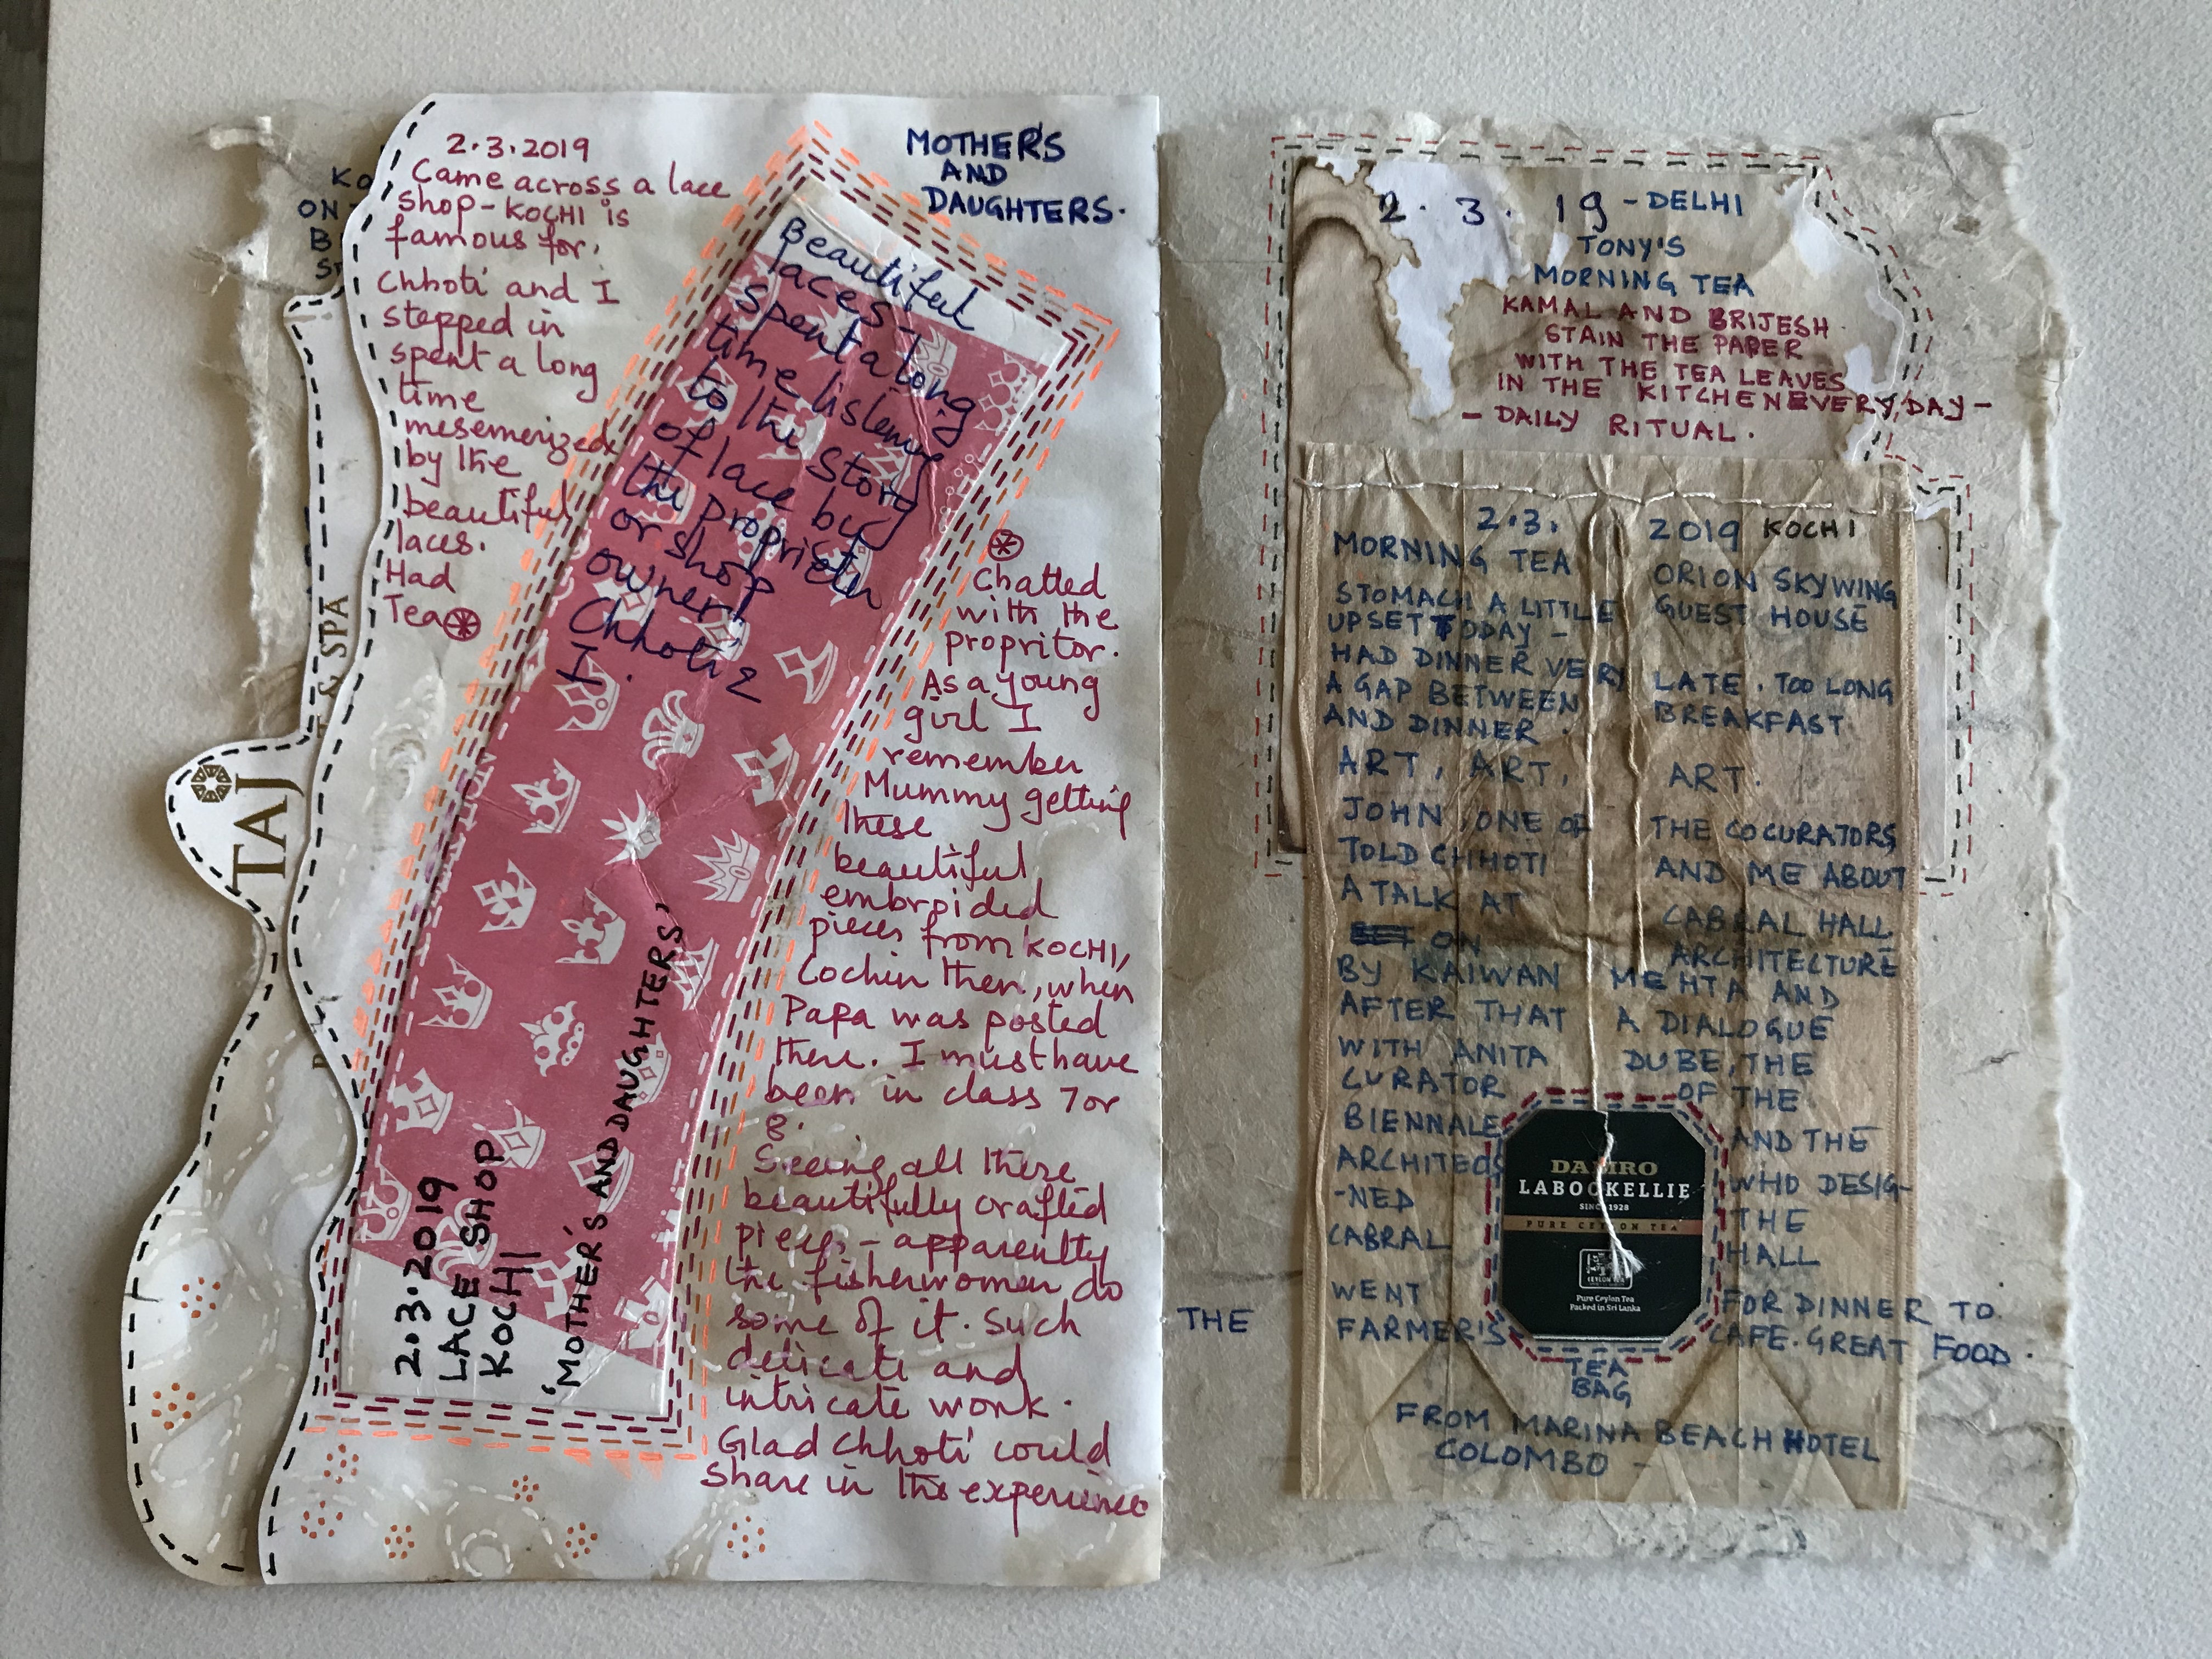 2.3.2019
Came across a lace
shop - KOCHI is
famous for.
Chhoti and I
stepped in
spent a long
time
mesemerized
by the
beautiful
laces.
Had
Tea
MOTHER'S
AND
DAUGHTERS.
Beautiful
laces -
spent a long
time listening
to the story
of lace by
the proprietor
or shop
owner!
Chhoti &
I.
2.3.2019
LACE SHOP
KOCHI
'MOTHER'S AND DAUGHTERS'
Chatted
with the
propritor.
As a young
girl I
remember
Mummy getting
these
beautiful
embroided
pieces from KOCHI,
Cochin then, when
Papa was posted
there. I must have
been in class 7 or
8.
Seeing all these
beautifully crafted
pieces - apparently
the fisherwomen do
some of it. Such
delicate and
intricate work.
Glad Chhoti could
share in the experience
KO
ON
B
& SPA
TAJ
2.3.19 - DELHI
TONY'S
MORNING TEA
KAMAL AND BRIJESH
STAIN THE PAPER
WITH THE TEA LEAVES
IN THE KITCHEN EVERY DAY -
- DAILY RITUAL.
2.3. 2019 KOCHI
MORNING TEA ORION SKYWING
STOMACH A LITTLE GUEST HOUSE
UPSET TODAY -
HAD DINNER VERY LATE. TOO LONG
A GAP BETWEEN BREAKFAST
AND DINNER.
ART, ART, ART.
JOHN, ONE OF THE COCURATORS,
TOLD CHHOTI AND ME ABOUT
A TALK AT CABRAL HALL
ON ARCHITECTURE
BY KAIWAN MEHTA AND
AFTER THAT A DIALOGUE
WITH ANITA DUBE, THE
CURATOR OF THE
BIENNALE AND THE
ARCHITECTS WHO DESIG-
-NED THE
CABRAL HALL
WENT FOR DINNER TO
THE FARMER'S CAFE. GREAT FOOD.
DAMRO
LABOOKELLIE
SINCE 1928
PURE CEYLON TEA
CEYLON TEA
Pure Ceylon Tea
Packed in Sri Lanka
TEA
BAG
FROM MARINA BEACH HOTEL
COLOMBO -